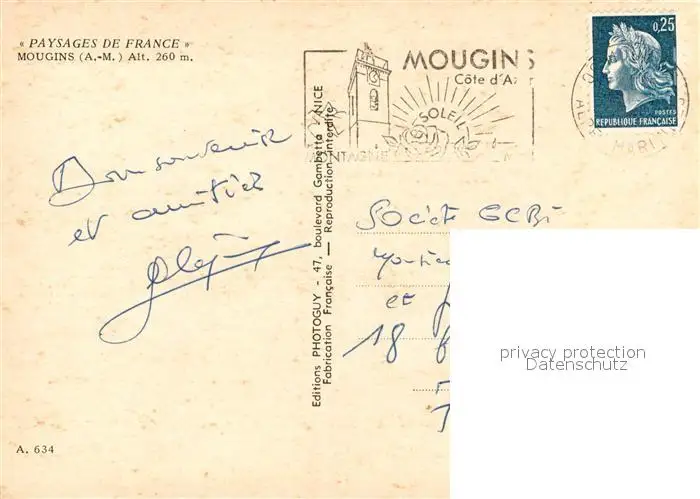 « PAYSAGES DE FRANCE »
MOUGINS (A.-M.) Alt. 260 m.
Bon souvenir
et amitiés
A. 634
Editions PHOTOGUY - 47, boulevard Gambetta - NICE
Fabrication Française — Reproduction interdite
MOUGINS
Côte d'Azur
SOLEIL
MONTAGNE
0,25
POSTES
REPUBLIQUE FRANÇAISE
Société
et
18
privacy protection
Datenschutz